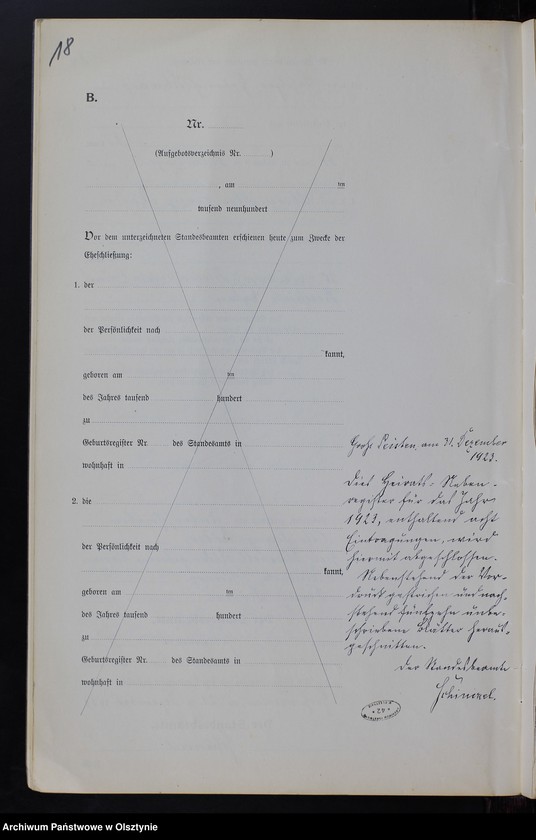 18
B.
Nr.
(Aufgebotsverzeichnis Nr. )
, am ten
tausend neunhundert
Vor dem unterzeichneten Standesbeamten erschienen heute zum Zwecke der
Eheschließung:
1. der
der Persönlichkeit nach
kannt,
geboren am ten
des Jahres tausend hundert
zu
Geburtsregister Nr. des Standesamts in
wohnhaft in
2. die
der Persönlichkeit nach
kannt,
geboren am ten
des Jahres tausend hundert
zu
Geburtsregister Nr. des Standesamts in
wohnhaft in
Groß Peisten, am 31. Dezember
1923.
Dies Heirats-Neben-
register für das Jahr
1923, enthaltend acht
Eintragungen, wird
hiermit abgeschlossen.
Nebenstehend der Vor-
druck gestrichen und nach-
stehend fünfzehn unbe-
schriebene Blätter heraus-
geschnitten.
Der Standesbeamte
Archiwum Państwowe w Olsztynie